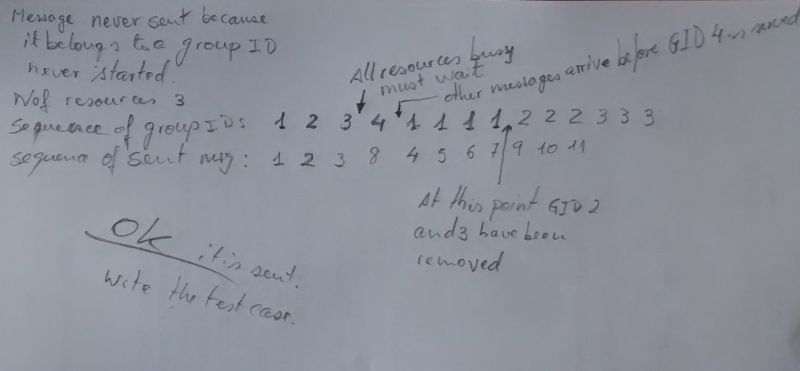 Message never sent because
it belongs to a group ID
never started.
Nof resources 3
All resources busy
must wait
other messages arrive before GID 4 is served
Sequence of group IDs: 1 2 3 4 1 1 1 1 2 2 2 3 3 3
sequence of sent msg: 1 2 3 8 4 5 6 7 9 10 11
At this point GID 2
and 3 have been
removed
OK it is sent.
Write the test case.